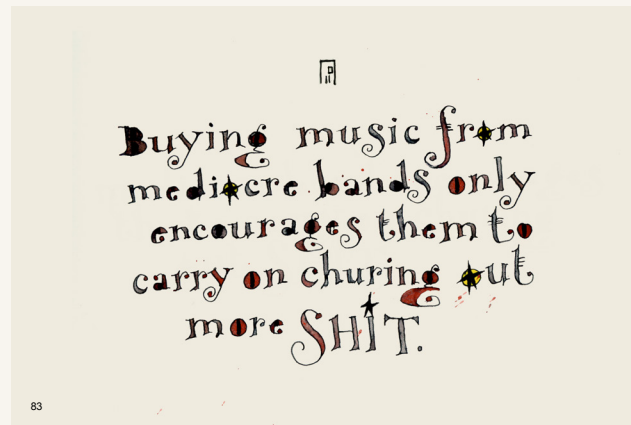 Buying music from
mediocre bands only
encourages them to
carry on churing out
more SHiT.
83